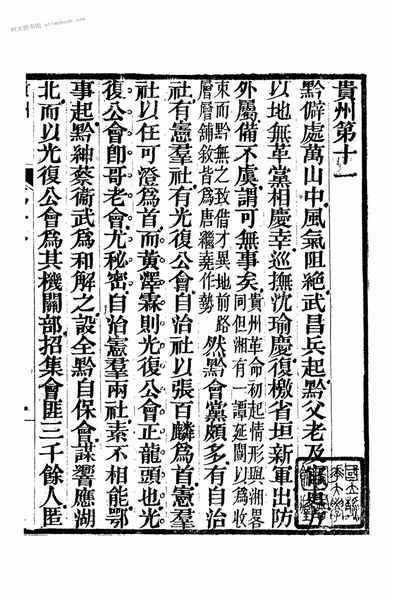 貴州第十一
黔僻處萬山中風氣阻絕武昌兵起黔父老及
以地無革黨相慶幸巡撫沈瑜慶復檄省垣新軍出防
外屬備不虞謂可無事矣貴州革命初起情形與湘畧
同但湘有一譚延闓以爲收
束而黔無之致借才異地前路
層層鋪敘皆爲唐繼堯作勢
然黔會黨頗多有自治
社有憲羣社有光復公會自治社以張百麟爲首憲羣
社以任可澄爲首而黃澤霖則光復公會正龍頭也光
復公會卽哥老會尤秘密自治憲羣兩社素不相能鄂
事起黔紳蔡衡武爲和解之設全黔自保會謀響應湖
北而以光復公會爲其機關部招集會匪三千餘人匪